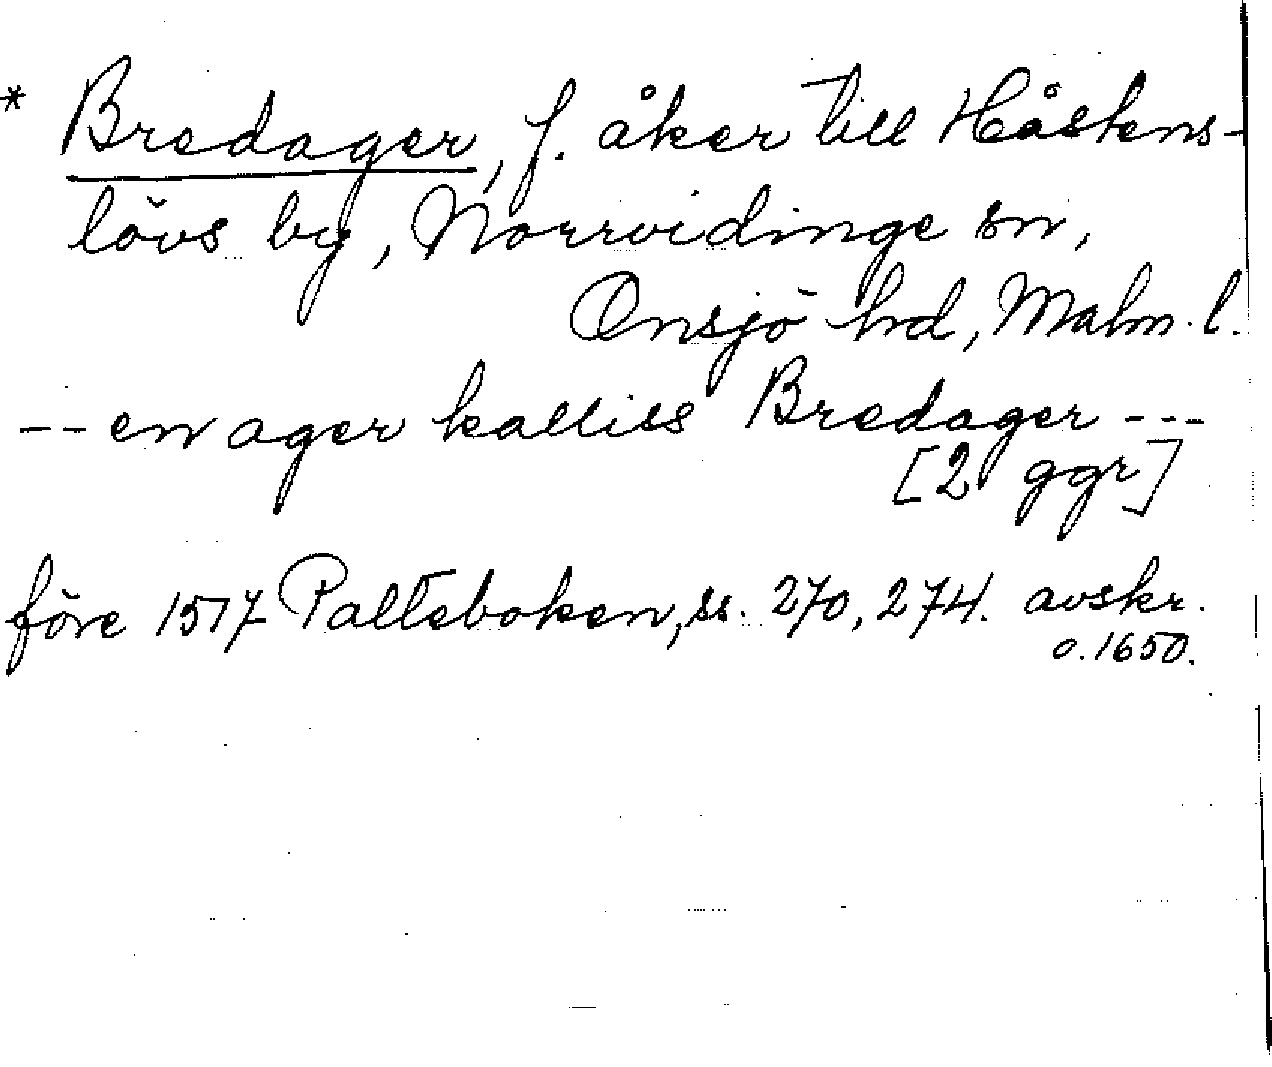 * Bredager, f. åker till Håstens-
lövs by, Norrvidinge sn,
Onsjö hd, Malm. l.
-- en ager kalliis Bredager ---
[2 ggr]
före 1517 Palteboken, ss. 270, 274. avskr.
o. 1650.